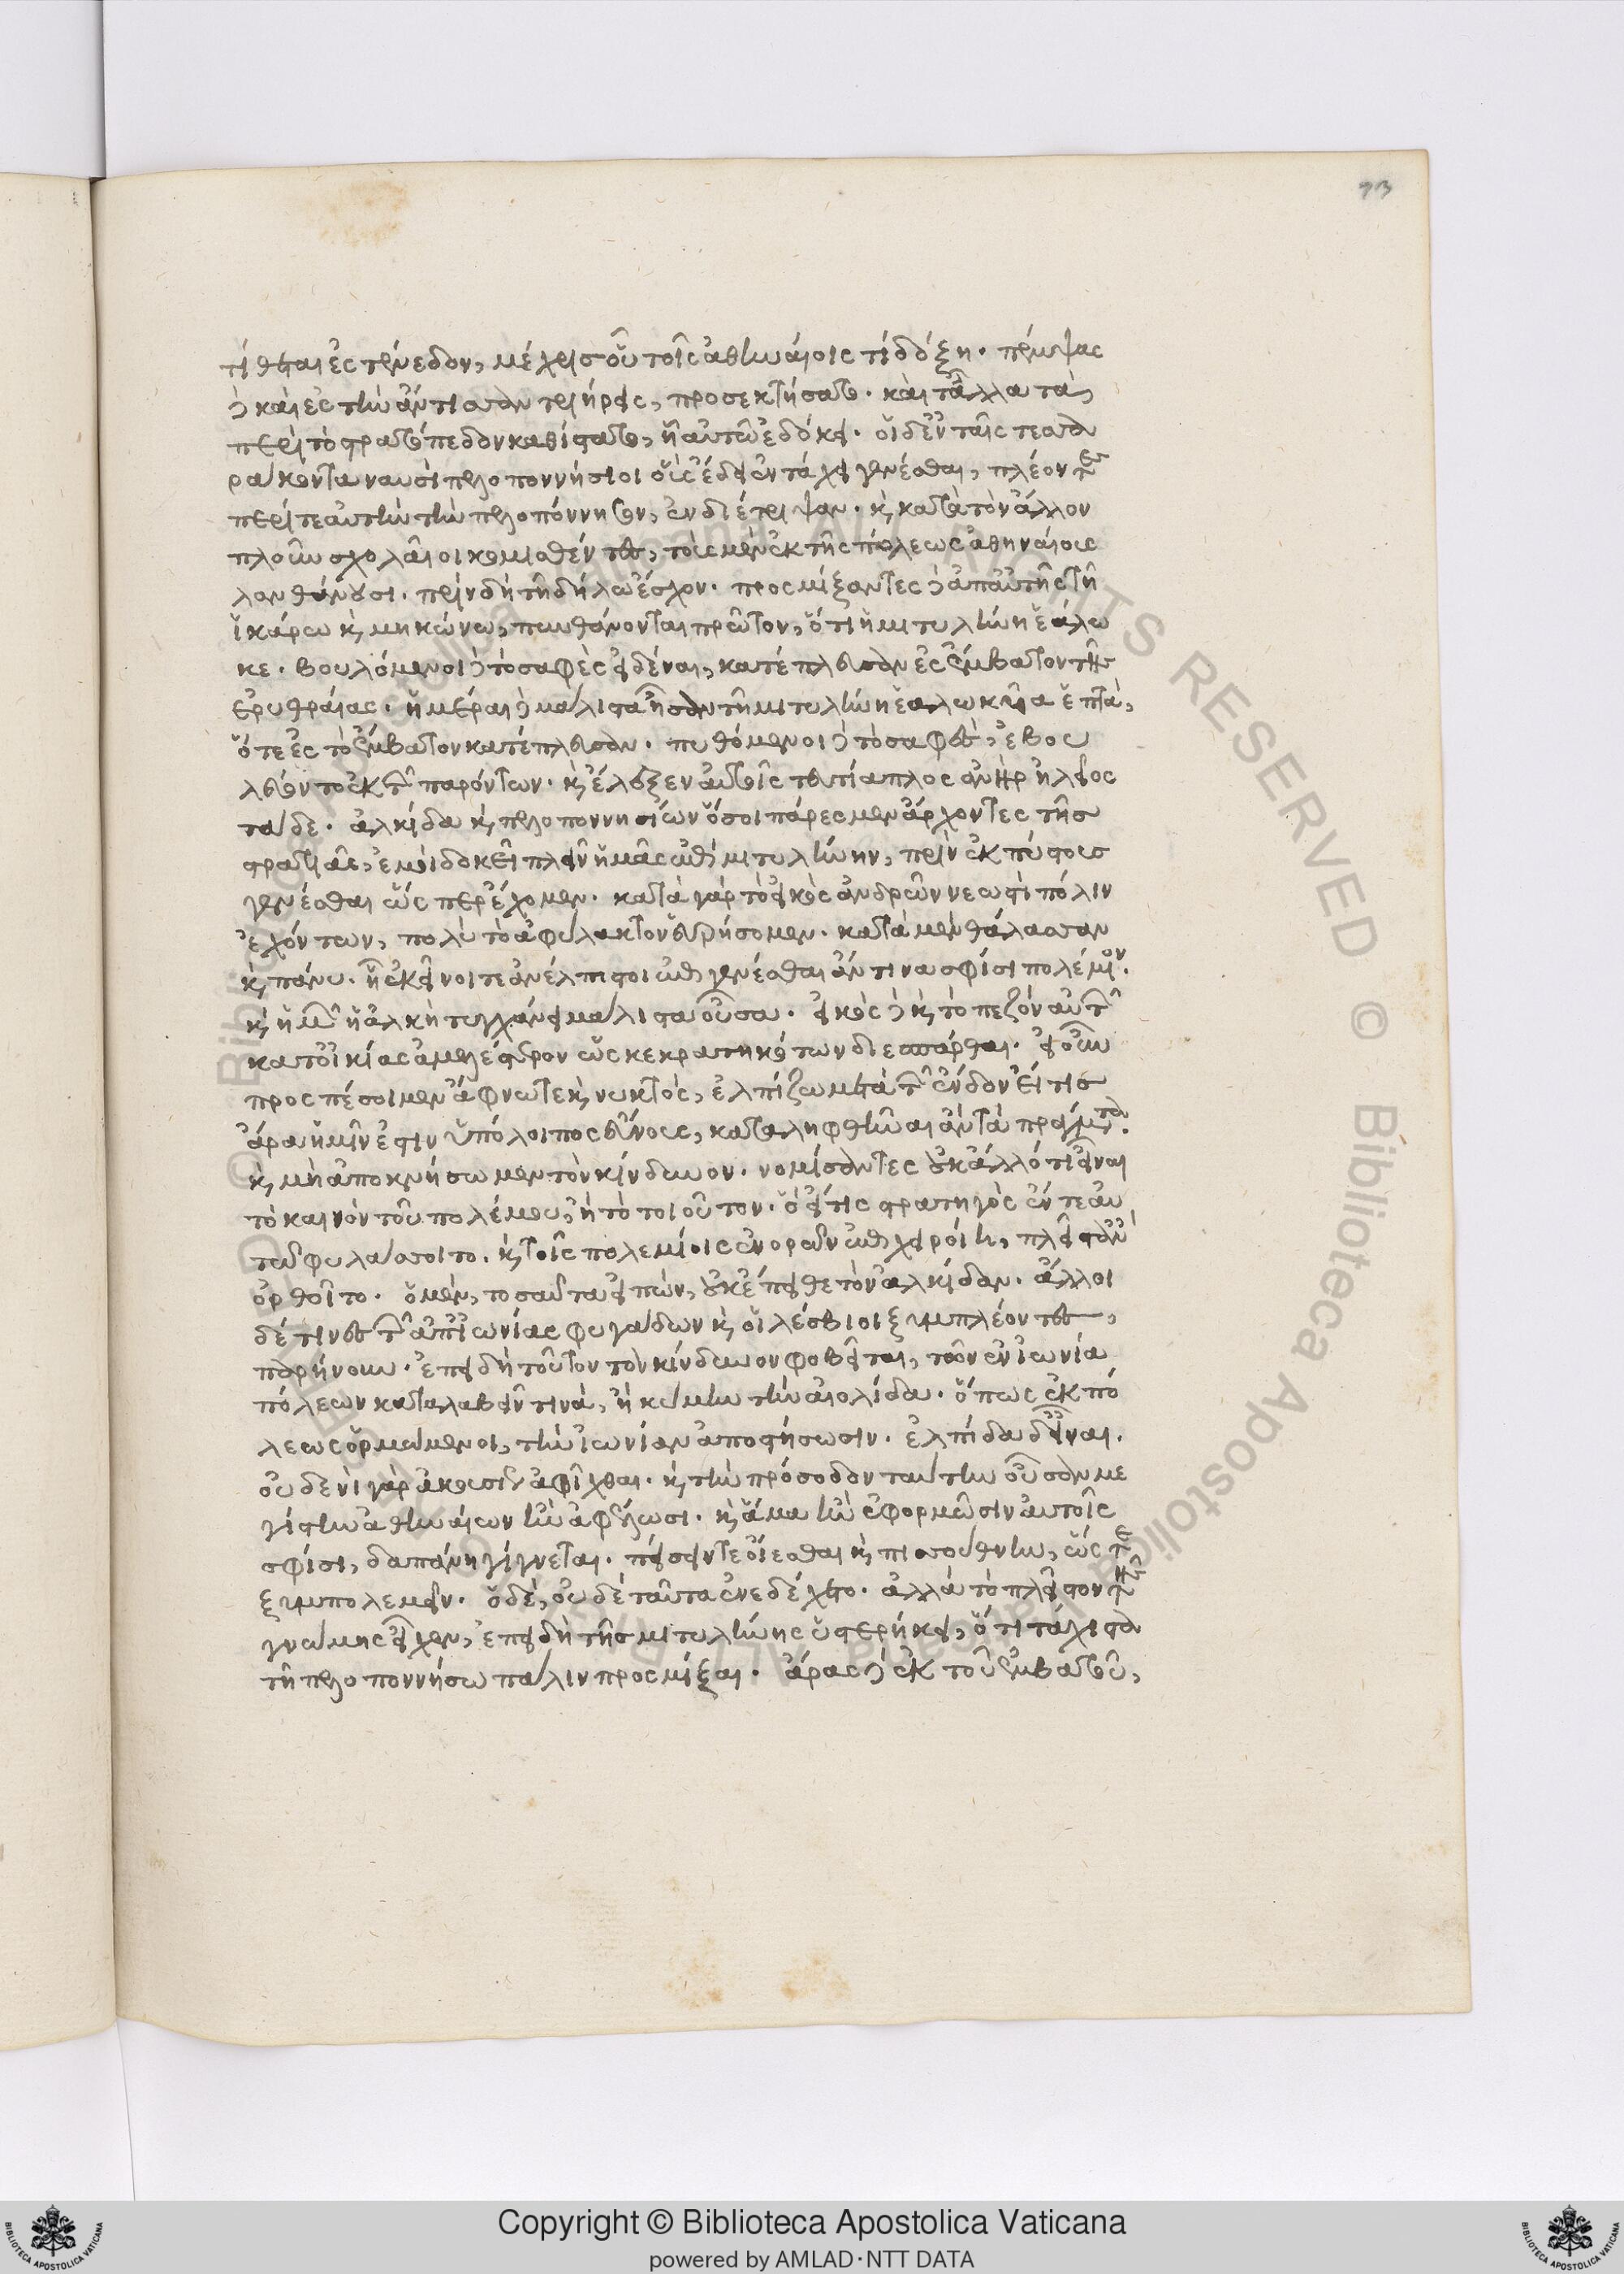 93
τίθεται ἐς τένεδον, μέχρις οὗ τοῖς ἀθηναίοις τὶ δόξῃ. πέμψας
δὲ καὶ ἐς τὴν ἄντισσαν τριήρεις, προσεκτήσατο. καὶ τἆλλα τὰ
περὶ τὸ στρατόπεδον καθίστατο, ᾗ αὐτῷ ἐδόκει. οἱ δ' ἐν ταῖς τεσσα
ράκοντα ναυσὶ πελοποννήσιοι οὓς ἔδει ἐν τάχει γενέσθαι, πλέοντες
περί τε αὐτὴν τὴν πελοπόννησον, ἐνδιέτριψαν. κὶ κατὰ τὸν ἄλλον
πλοῦν σχολαῖοι κομισθέντες, τοὺς μὲν ἐκ τῆς πόλεως ἀθηναίους
λανθάνουσι. πρὶν δὴ τῇ δήλῳ ἔσχον. προσμίξαντες δὲ ἀπ' αὐτῆς τῇ
ἰκάρῳ κὶ μηκώνῳ, πυνθάνονται πρῶτον, ὅτι ἡ μιτυλήνη ἑάλω
κε. βουλόμενοι δὲ τὸ σαφὲς εἰδέναι, κατέπλευσαν ἐς ἔμβατον τῆς
ἐρυθραίας. ἡμέραι δὲ μάλιστα ἦσαν τῇ μιτυλήνῃ ἑαλωκυίᾳ ἑπτὰ,
ὅτε ἐς τὸ ἔμβατον κατέπλευσαν. πυθόμενοι δὲ τὸ σαφὲς, ἐβου
λεύοντο ἐκ τῶν παρόντων. κὶ ἔλεξεν αὐτοῖς τευτίαπλος ἀνὴρ ἠλεῖος
τάδε. ἀλκίδα κὶ πελοποννησίων ὅσοι πάρεσμεν ἄρχοντες τῆς
στρατιᾶς, ἐμοὶ δοκεῖ πλεῖν ἡμᾶς ἐπὶ μιτυλήνην, πρὶν ἐκπύστους
γενέσθαι ὥσπερ ἔχομεν. κατὰ γὰρ τὸ εἰκὸς ἀνδρῶν νεωστὶ πόλιν
ἐχόντων, πολὺ τὸ ἀφύλακτον εὑρήσομεν. κατὰ μὲν θάλασσαν
κὶ πάνυ. ᾗ ἐκεῖνοί τε ἀνέλπιστοι ἐπιγενέσθαι ἄν τινα σφίσι πολέμιον.
κὶ ἡμῶν ἡ ἀλκὴ τυγχάνει μάλιστα οὖσα. εἰκὸς δὲ κὶ τὸ πεζὸν αὐτῶν
κατ' οἰκίας ἀμελέστερον ὡς κεκρατηκότων διεσπάρθαι. εἰ οὖν
προσπέσοιμεν ἄφνω τε κὶ νυκτὸς, ἐλπίζω μετὰ τῶν ἔνδον εἴ τις
ἄρα ἡμῖν ἐστιν ὑπόλοιπος εὔνους, καταληφθῆναι ἂν τὰ πράγματα.
κὶ μὴ ἀποκνήσωμεν τὸν κίνδυνον. νομίσαντες οὐκ ἄλλό τι εἶναι
τὸ καινὸν τοῦ πολέμου, ἢ τὸ τοιοῦτον. ὃ εἴ τις στρατηγὸς ἔν τε αὑ
τῷ φυλάσσοιτο. κὶ τοῖς πολεμίοις ἐνορῶν ἐπιχειροίη, πλεῖστ' ἂν
ὀρθοῖτο. ὁ μὲν, τοσαῦτα εἰπὼν, οὐκ ἔπειθε τὸν ἀλκίδαν. ἄλλοι
δέ τινες τῶν ἀπ' ἰωνίας φυγάδων κὶ οἱ λέσβιοι ξυμπλέοντες,
παρῄνουν. ἐπειδὴ τοῦτον τὸν κίνδυνον φοβεῖται, τῶν ἐν ἰωνίᾳ
πόλεων καταλαβεῖν τινὰ, ἢ κύμην τὴν αἰολίδα. ὅπως ἐκ πό
λεως ὁρμώμενοι, τὴν ἰωνίαν ἀποστήσωσιν. ἐλπίδα δ' εἶναι.
οὐδενὶ γὰρ ἀκουσίως ἀφῖχθαι. κὶ τὴν πρόσοδον ταύτην οὖσαν με
γίστην ἀθηναίων ἢν ἀφέλωσι. κὶ ἅμα ἢν ἐφορμῶσιν αὐτοῖς
σφίσι, δαπάνη γίγνεται. πείσειν τε οἴεσθαι κὶ πισσούθνην, ὥστε
ξυμπολεμεῖν. ὁ δὲ, οὐδὲ ταῦτα ἐνεδέχετο. ἀλλὰ τὸ πλεῖστον τῆς
γνώμης εἶχεν, ἐπειδὴ τῆς μιτυλήνης ὑστερήκει, ὅτι τάχιστα
τῇ πελοποννήσῳ πάλιν προσμίξαι. ἄρας δὲ ἐκ τοῦ ἐμβάτου,
Copyright © Biblioteca Apostolica Vaticana
powered by AMLAD·NTT DATA